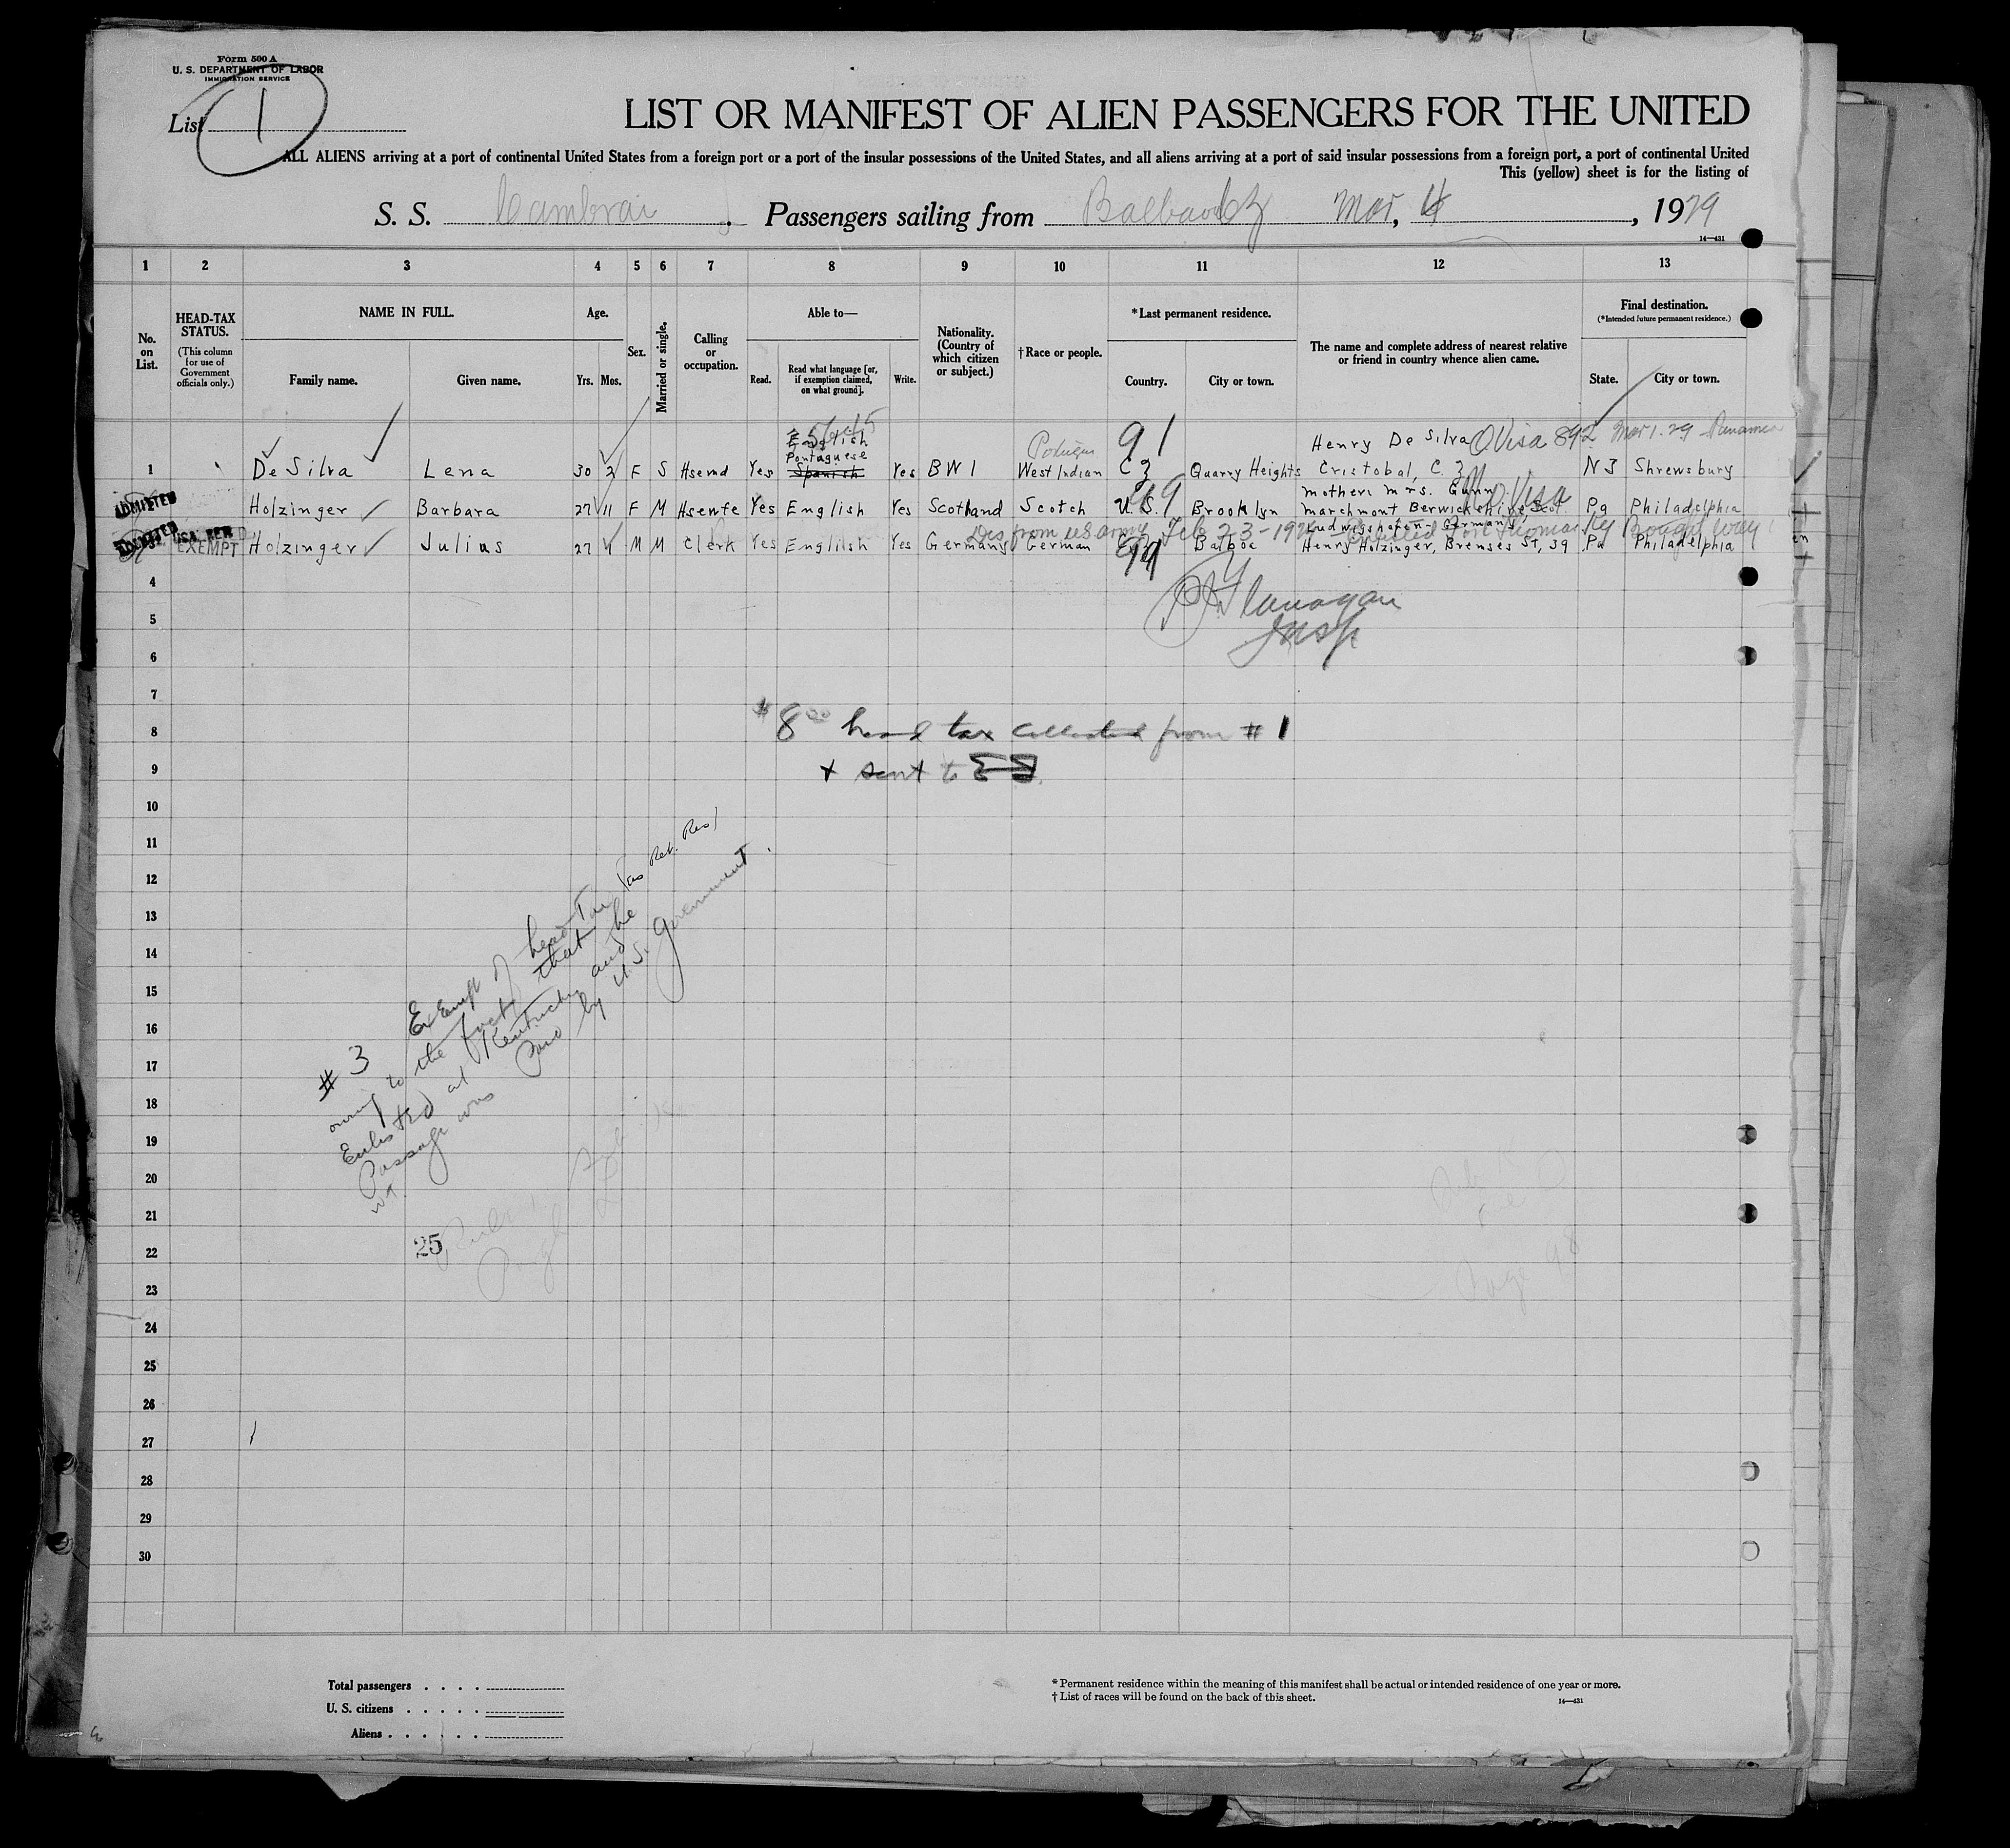 Form 500 A
U. S. DEPARTMENT OF LABOR
IMMIGRATION SERVICE
List 1
LIST OR MANIFEST OF ALIEN PASSENGERS FOR THE UNITED
ALL ALIENS arriving at a port of continental United States from a foreign port or a port of the insular possessions of the United States, and all aliens arriving at a port of said insular possessions from a foreign port, a port of continental United
This (yellow) sheet is for the listing of
S. S. Cambrai, Passengers sailing from Balboa CZ Mar, 4, 1929
14—431
1 2 3 4 5 6 7 8 9 10 11 12 13
No. on List.
HEAD-TAX STATUS.
(This column for use of Government officials only.)
NAME IN FULL.
Family name. Given name.
Age.
Yrs. Mos.
Sex.
Married or single.
Calling or occupation.
Able to—
Read. Read what language [or, if exemption claimed, on what ground]. Write.
Nationality. (Country of which citizen or subject.)
†Race or people.
*Last permanent residence.
Country. City or town.
The name and complete address of nearest relative or friend in country whence alien came.
Final destination.
(*Intended future permanent residence.)
State. City or town.
English
Portuguese
91 Henry De Silva Visa 892 Mar 1. 29 Panama
1 De Silva Lena 30 2 F S Hsemd Yes Spanish Yes BWI West Indian CZ Quarry Heights Cristobal, CZ NJ Shrewsbury
mother: mrs. Gunn No Visa
ADMITTED Holzinger Barbara 27 11 F M Hsewfe Yes English Yes Scotland Scotch U.S. Brooklyn marchmont Berwickshire Scot. Pa Philadelphia
Dis from US army Feb 23-1929 Enlisted Fort Thomas Ky
Ludwigshafen Germany
ADMITTED EXEMPT Holzinger Julius 27 M M Clerk Yes Englilsh Yes Germany German Balboa Henry Holzinger, Bremses St, 39 Pa Philadelphia
4
Flanagan
5
Insp
6
7
8 $8 00 head tax collected from #1
9 + sent to
10
11
12
13
14
15
16
17
18
19
20
21
22
23
24
25
26
27
28
29
30
#3 Exempt of head Tax (as Ret. Res)
owing to the fact that he
Enlisted at Kentucky and the
Passage was Paid by U.S. Government.
25
Page 98
Total passengers . . . .
U. S. citizens . . . . .
Aliens . . . . . .
*Permanent residence within the meaning of this manifest shall be actual or intended residence of one year or more.
†List of races will be found on the back of this sheet.
14—431